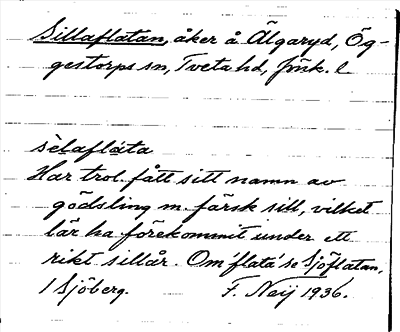 Sillaflatan, åker å Älgaryd, Ög-
gestorps sn, Tveta hd, Jönk. l
sèlaflàta
Har trol. fått sitt namn av
gödsling m. färsk sill, vilket
lär ha förekommit under ett
rikt sillår. Om 'flata' se Sjöflatan,
1 Sjöberg. F. Neij 1936.